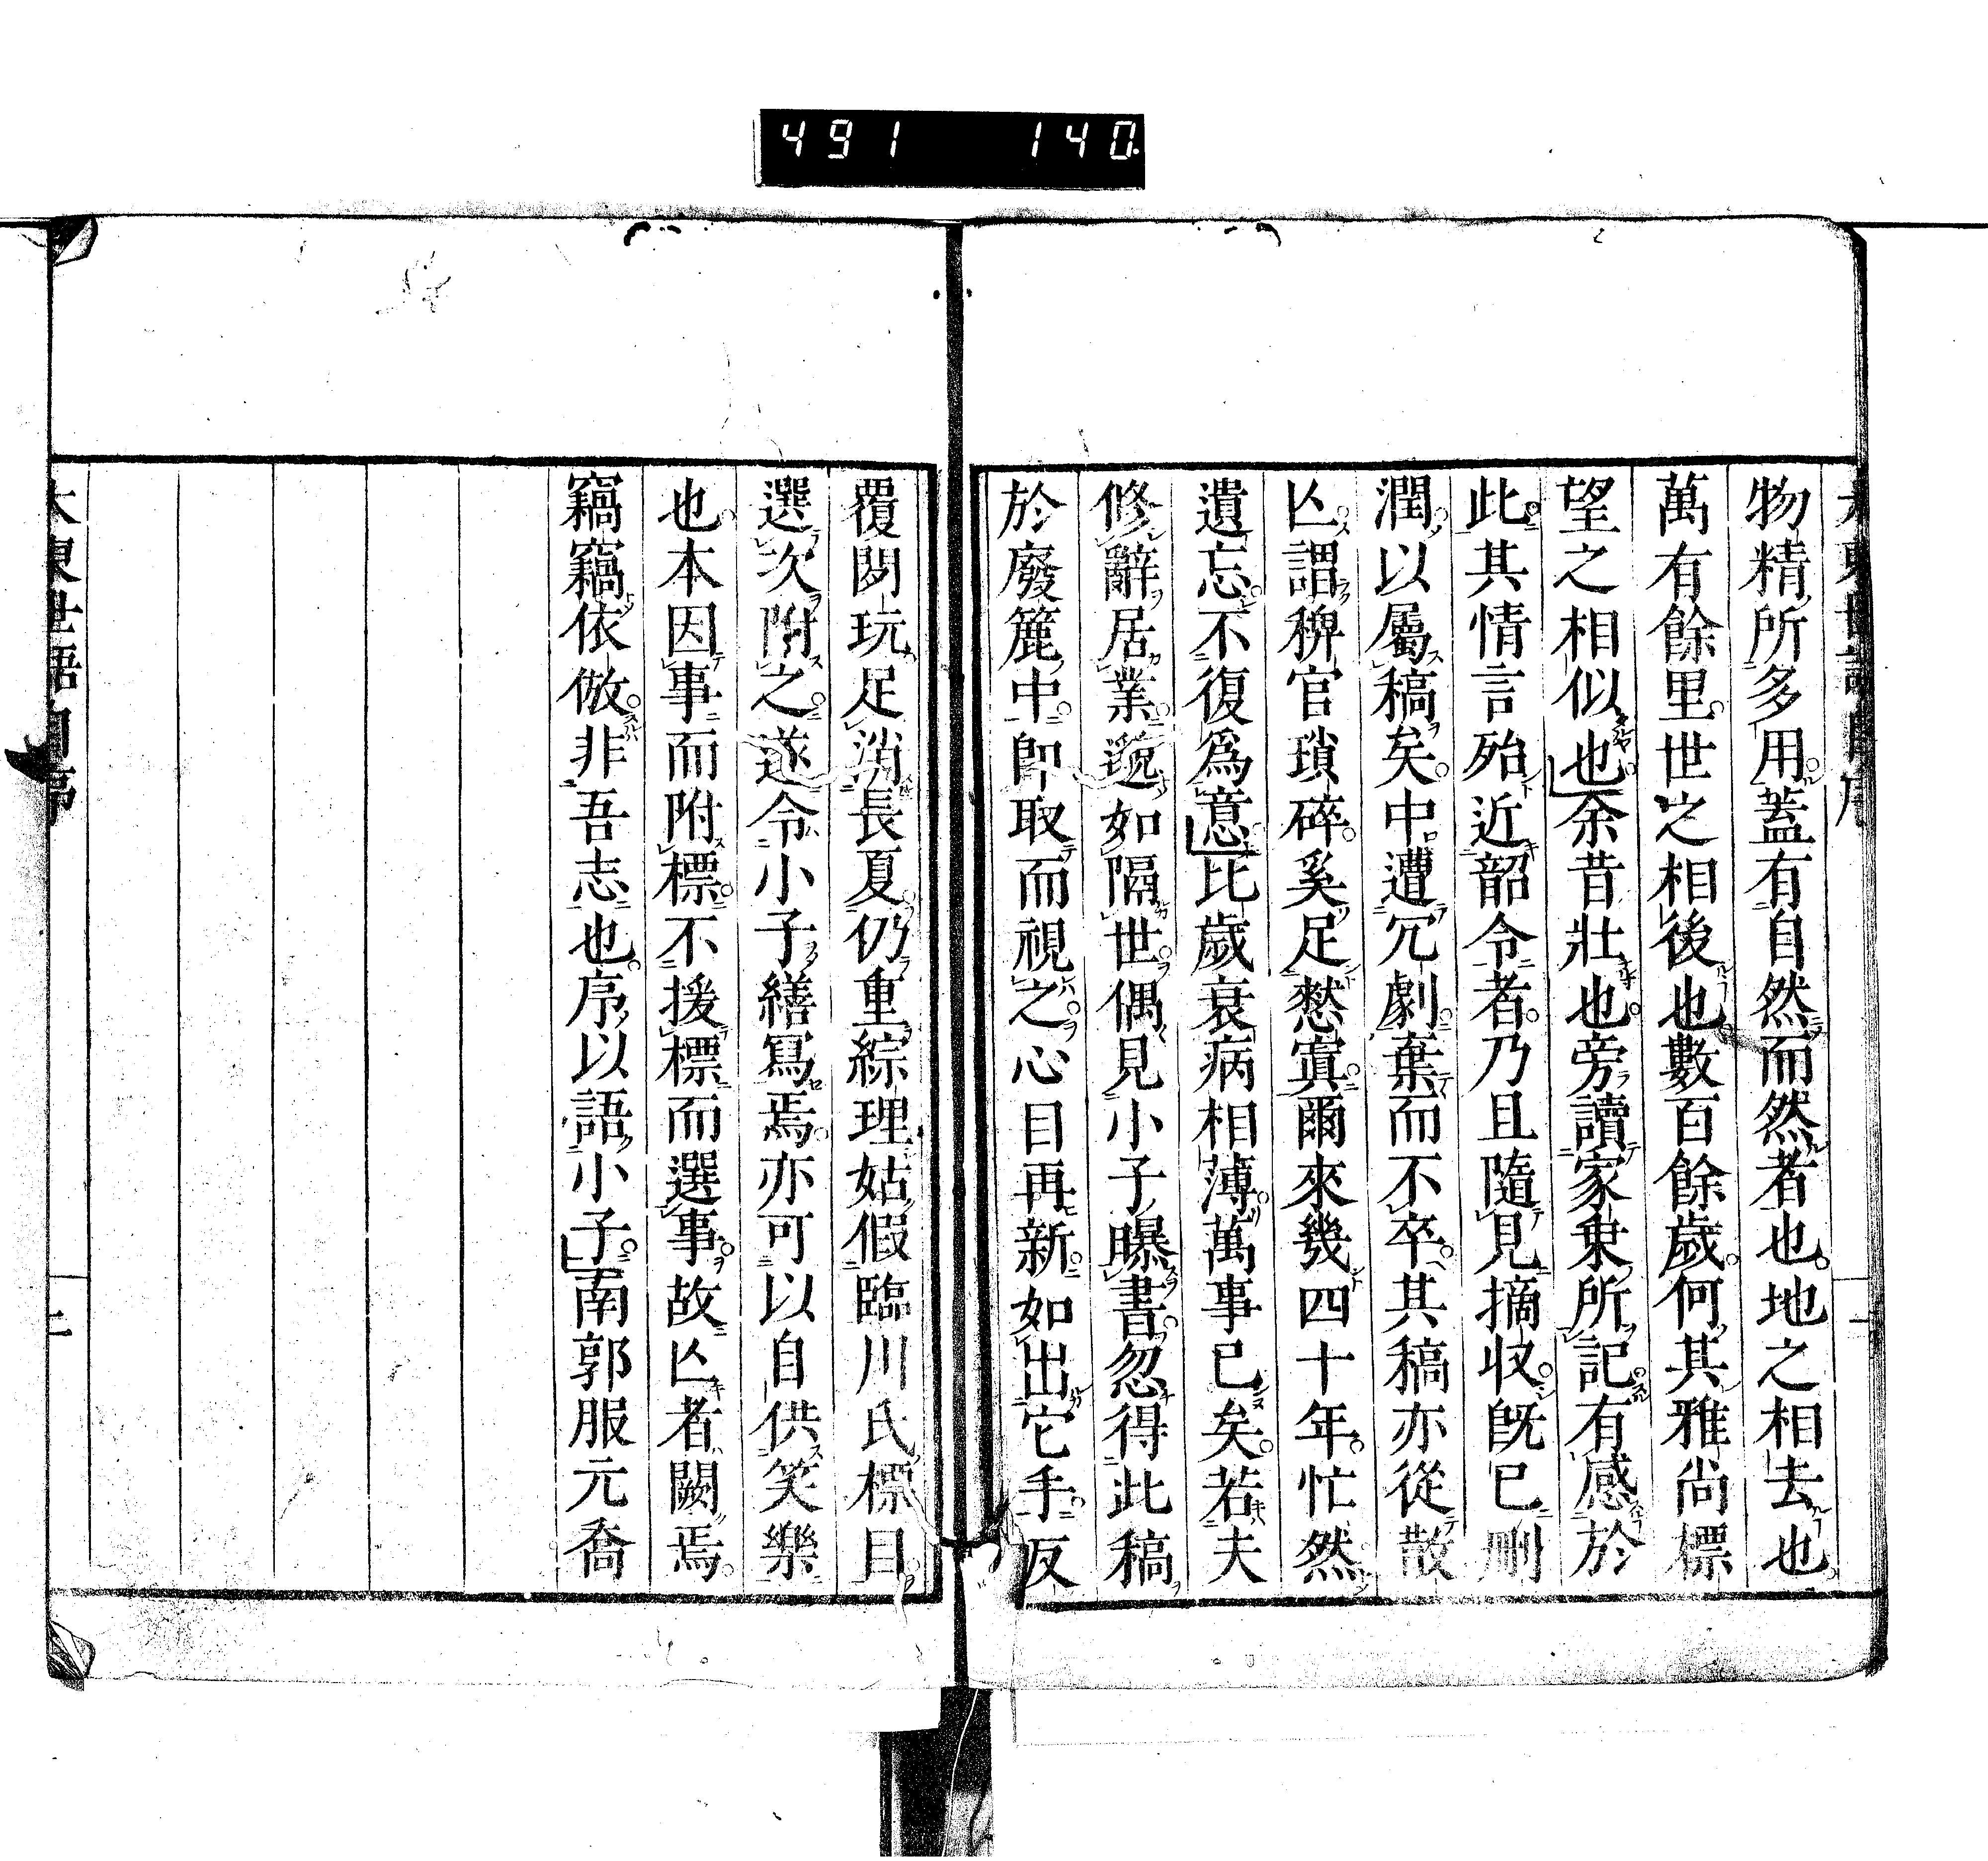 491 140
物精所多用蓋有自然而然者也地之相去也
萬有餘里世之相後也數百餘歲何其雅尚標
望之相似也余昔壯也旁讀家乗所記有感於
此其情言殆近韶令者乃且隨見摘収旣已刪
潤以屬稿矣中遭冗劇棄而不卒其稿亦從散
亾謂稗官瑣碎奚足愁寘爾來幾四十年忙然
遺忘不復爲意比歲衰病相薄萬事已矣若夫
修辭居業邈如隔世偶見小子曝書忽得此稿
於廢簏中卽取而視之心目再新如出它手反
覆閱玩足消長夏仍重綜理姑假臨川氏標目
選次附之遂令小子繕寫焉亦可以自供笑樂
也本因事而附標不援標而選事故亾者闕焉
竊竊依倣非吾志也序以語小子南郭服元喬
大東世語自序
二